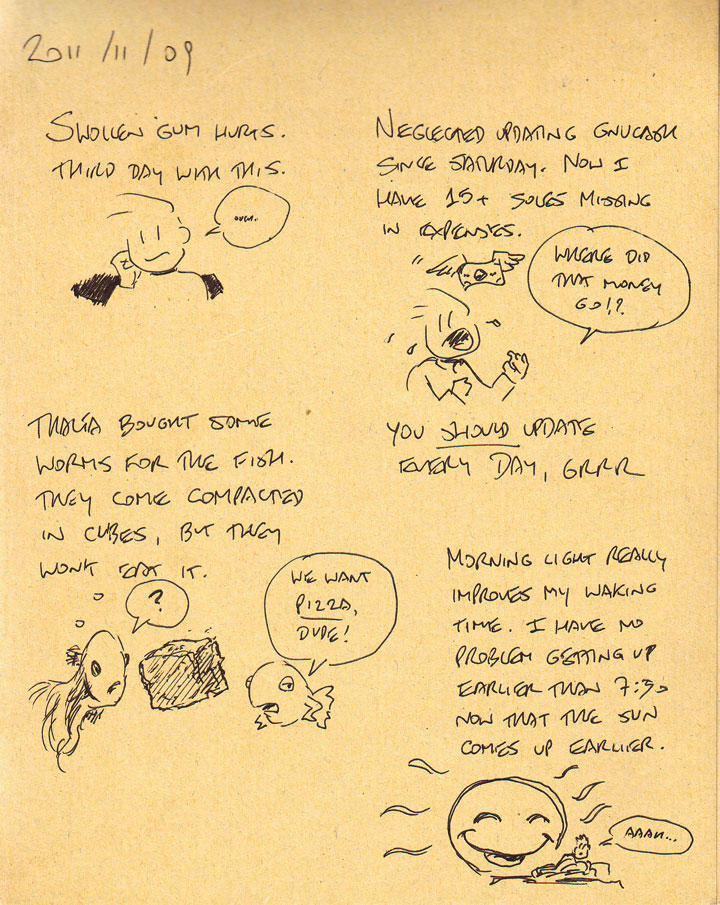 2011/11/09
SWOLLEN GUM HURTS.
THIRD DAY WITH THIS.
OUCH..
NEGLECTED UPDATING GNUCASH
SINCE SATURDAY. NOW I
HAVE 15+ SOLES MISSING
IN EXPENSES.
WHERE DID
THAT MONEY
GO!?
YOU SHOULD UPDATE
EVERY DAY, GRRR
THALÍA BOUGHT SOME
WORMS FOR THE FISH.
THEY COME COMPACTED
IN CUBES, BUT THEY
WONT EAT IT.
?
WE WANT
PIZZA,
DUDE!
MORNING LIGHT REALLY
IMPROVES MY WAKING
TIME. I HAVE NO
PROBLEM GETTING UP
EARLIER THAN 7:30
NOW THAT THE SUN
COMES UP EARLIER.
AAAH...